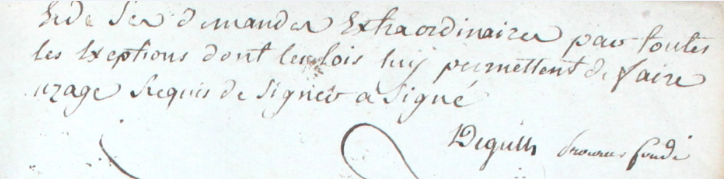 et de ses demandes Extraordinaires par toutes
les Exeptions dont les lois luy permettent de faire
uzage Requis de Signer a Signé
fondé